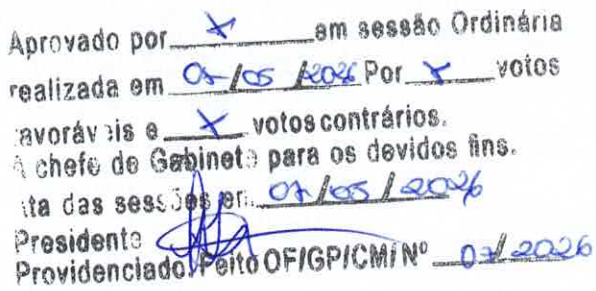 Aprovado por X em sessão Ordinária
realizada em 07/05/2026 Por X votos
avoráveis e X votos contrários.
À chefe de Gabinete para os devidos fins.
ta das sessões em 07/05/2026
Presidente
Providenciado/Feito OF/GP/CMI Nº 07/2026